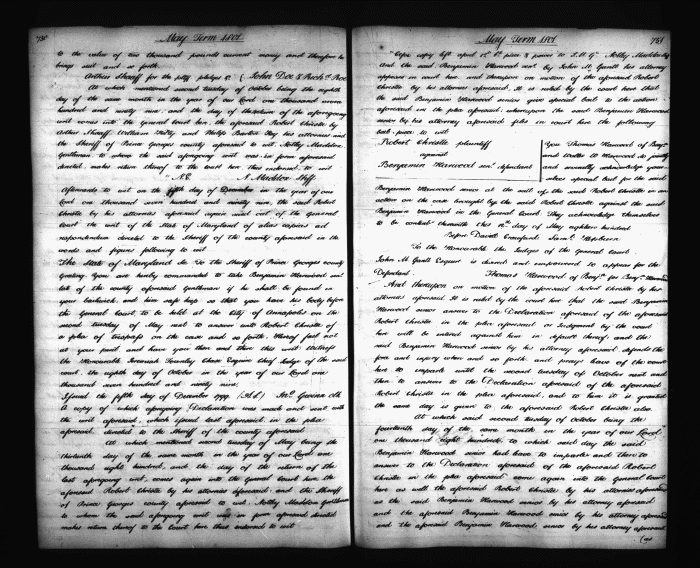 750 May Term 1801.
to the value of two thousand pounds current money and therefore he
brings suit and so forth.
Arthur Shaaff for the pltff pledges &c. (John Doe & Rich.d Roe
At which mentioned second tuesday of October being the eighth
day of the same month in the year of our Lord one thousand seven
hundred and ninety nine and the day of the return of the aforegoing
writ comes into the General court here the aforesaid Robert Christie by
Arthur Shaaff William Kilty and Philip Barton Key his attornies and
the Sheriff of Prince Georges county aforesaid to wit Notley Maddox
Gentleman to whom the said aforegoing writ was in form aforesaid
directed makes return thereof to the court here thus endorsed to wit
"N.E. N. Maddox Shff
Afterwards to wit on the fifth day of December in the year of our
Lord one thousand seven hundred and ninety nine the said Robert
Christie by his attornies aforesaid again sued out of the General
court the writ of the State of Maryland of alias capias ad
respondendum directed to the Sheriff of the county aforesaid in the
words and figures following to wit
The State of Maryland &c To the Sheriff of Prince Georges county
Greeting. You are hereby commanded to take Benjamin Harwood sen.r
late of the county aforesaid Gentleman if he shall be found in
your bailiwick and him safe keep so that you have his body before
the General Court to be held at the City of Annapolis on the
second tuesday of May next to answer unto Robert Christie of
a plea of trespass on the case and so forth. Hereof fail not
at your peril and have you then and there this writ Witness
the Honourable Jeremiah Townley Chase Esquire Chief Judge of the said
court the eighth day of October in the year of our Lord one
thousand seven hundred and ninety nine
Issued the fifth day of December 1799. Jno. Gwinn Clk
A copy of which aforegoing Declaration was made and sent with
the writ aforesaid which issued last aforesaid in the plea
aforesaid directed to the Sheriff of the county aforesaid
At which mentioned second tuesday of May being the
thirteenth day of the same month in the year of our Lord one
thousand eight hundred and the day of the return of the
last aforegoing writ comes again into the General Court here the
aforesaid Robert Christie by his attornies aforesaid and the Sheriff
of Prince Georges county aforesaid to wit Notley Maddox gentleman
to whom the said aforegoing writ was in form aforesaid directed
makes return thereof to the Court here thus endorsed to wit
May Term 1801. 751
"Cepi copy left april Notley Maddox Shff
And the said Benjamin Harwood sen.r by John M. Gantt his attorney
appears in court here and thereupon on motion of the aforesaid Robert
Christie by his attornies aforesaid it is ruled by the court here that
the said Benjamin Harwood senior give special bail to the action
aforesaid in the plea aforesaid whereupon the said Benjamin Harwood
senior by his attorney aforesaid files in court here the following
bail piece to wit
Robert Christie plaintiff
against
Benjamin Harwood sen.r defendant
You Thomas Harwood of Benj.n
and Walter
and severally acknowledge yourselves
special bail for the said
Benjamin Harwood senior at the suit of the said Robert Christie in an
action on the case brought by the said Robert Christie against the said
Benjamin Harwood in the General Court They acknowledge themselves
to be content thereunto this day of May eighteen hundred
Before David Craufurd Sam.l Hepburn
To the Honourable the Judges of the General court
John M. Gantt Esquire is desired and empowered to appear for the
Defendant. Thomas Harwood of Benj.n for Benj.n Harwood
And thereupon on motion of the aforesaid Robert Christie by his
attornies aforesaid it is ruled by the court here that the said Benjamin
Harwood senior answer to the Declaration aforesaid of the aforesaid
Robert Christie in the plea aforesaid or Judgment by the court
here will be entered against him in default thereof and the
said Benjamin Harwood senior by his attorney aforesaid defends the
force and injury when and so forth and prays leave of the court
here to imparle until the second tuesday of October next and
then to answer to the Declaration aforesaid of the aforesaid
Robert Christie in the plea aforesaid and to him it is granted
the same day is given to the aforesaid Robert Christie also.
At which said second tuesday of October being the
fourteenth day of the same month in the year of our Lord
one thousand eight hundred to which said day the said
Benjamin Harwood senior had leave to imparle and then to
answer to the Declaration aforesaid of the aforesaid Robert
Christie in the plea aforesaid come again into the General court
here as well the aforesaid Robert Christie by his attornies aforesaid
as the said Benjamin Harwood senior by his attorney aforesaid
and the aforesaid Benjamin Harwood senior by his attorney aforesaid
and the aforesaid Benjamin Harwood senior by his attorney aforesaid